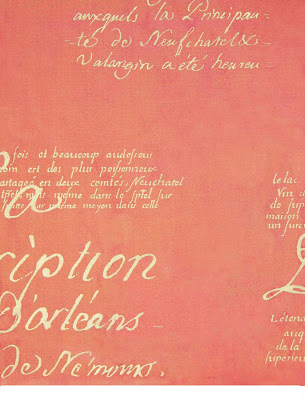 auxquels la Principau-
té de Neufchatel &
Valangin a été heureu-
fois et beaucoup audessous
nom est des plus poissonneux
partagée en deux comtés, Neuchatel
même dans le
même moyen dans celle
ription
D'orléans
de Némours.
le lac.
Vin
de sup
maisons
un surc
L'étend
de la
superieu